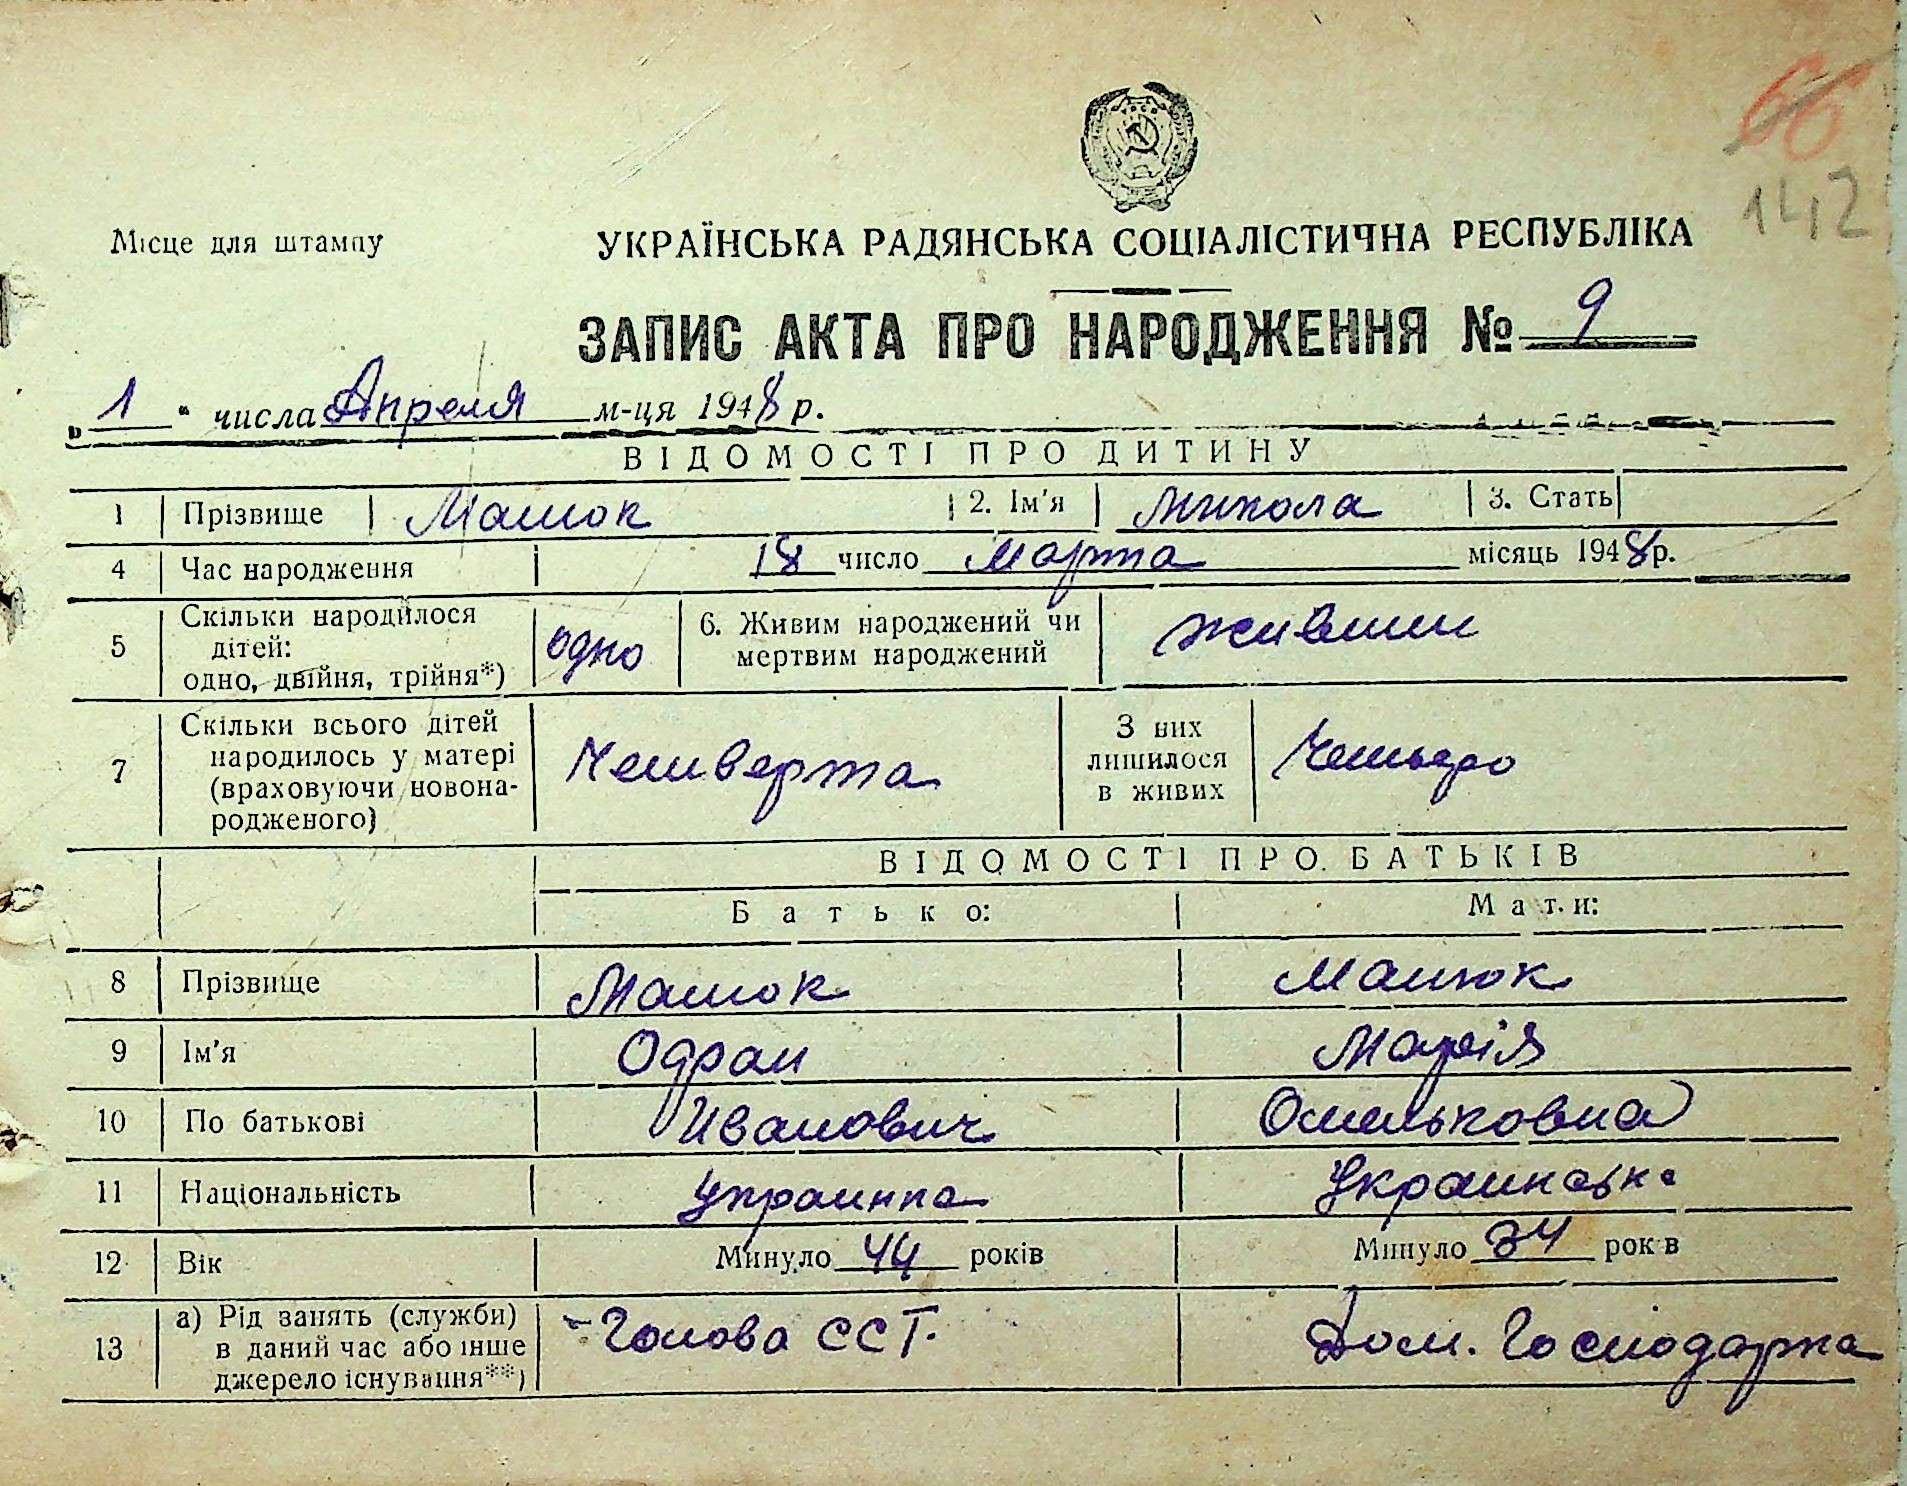 66
142
Місце для штампу
УКРАЇНСЬКА РАДЯНСЬКА СОЦІАЛІСТИЧНА РЕСПУБЛІКА
ЗАПИС АКТА ПРО НАРОДЖЕННЯ № 9
„ 1 " числа Апреля м-ця 1948 р.
ВІДОМОСТІ ПРО ДИТИНУ
1 Прізвище Машок 2. Ім'я Микола 3. Стать
4 Час народження 18 число Марта місяць 1948 р.
5 Скільки народилося дітей: одно, двійня, трійня*) одно 6. Живим народжений чи мертвим народжений
7 Скільки всього дітей народилось у матері (враховуючи новонародженого) Четверта З них лишилося в живих Четверо
ВІДОМОСТІ ПРО БАТЬКІВ
Батько: Мати:
8 Прізвище Машок Машок
9 Ім'я Марія
10 По батькові Иванович Омельковна
11 Національність Украинка Украинська
12 Вік Минуло 44 років Минуло 34 років
13 а) Рід занять (служби) в даний час або інше джерело існування**) Голова ССТ. Дом. Господарка